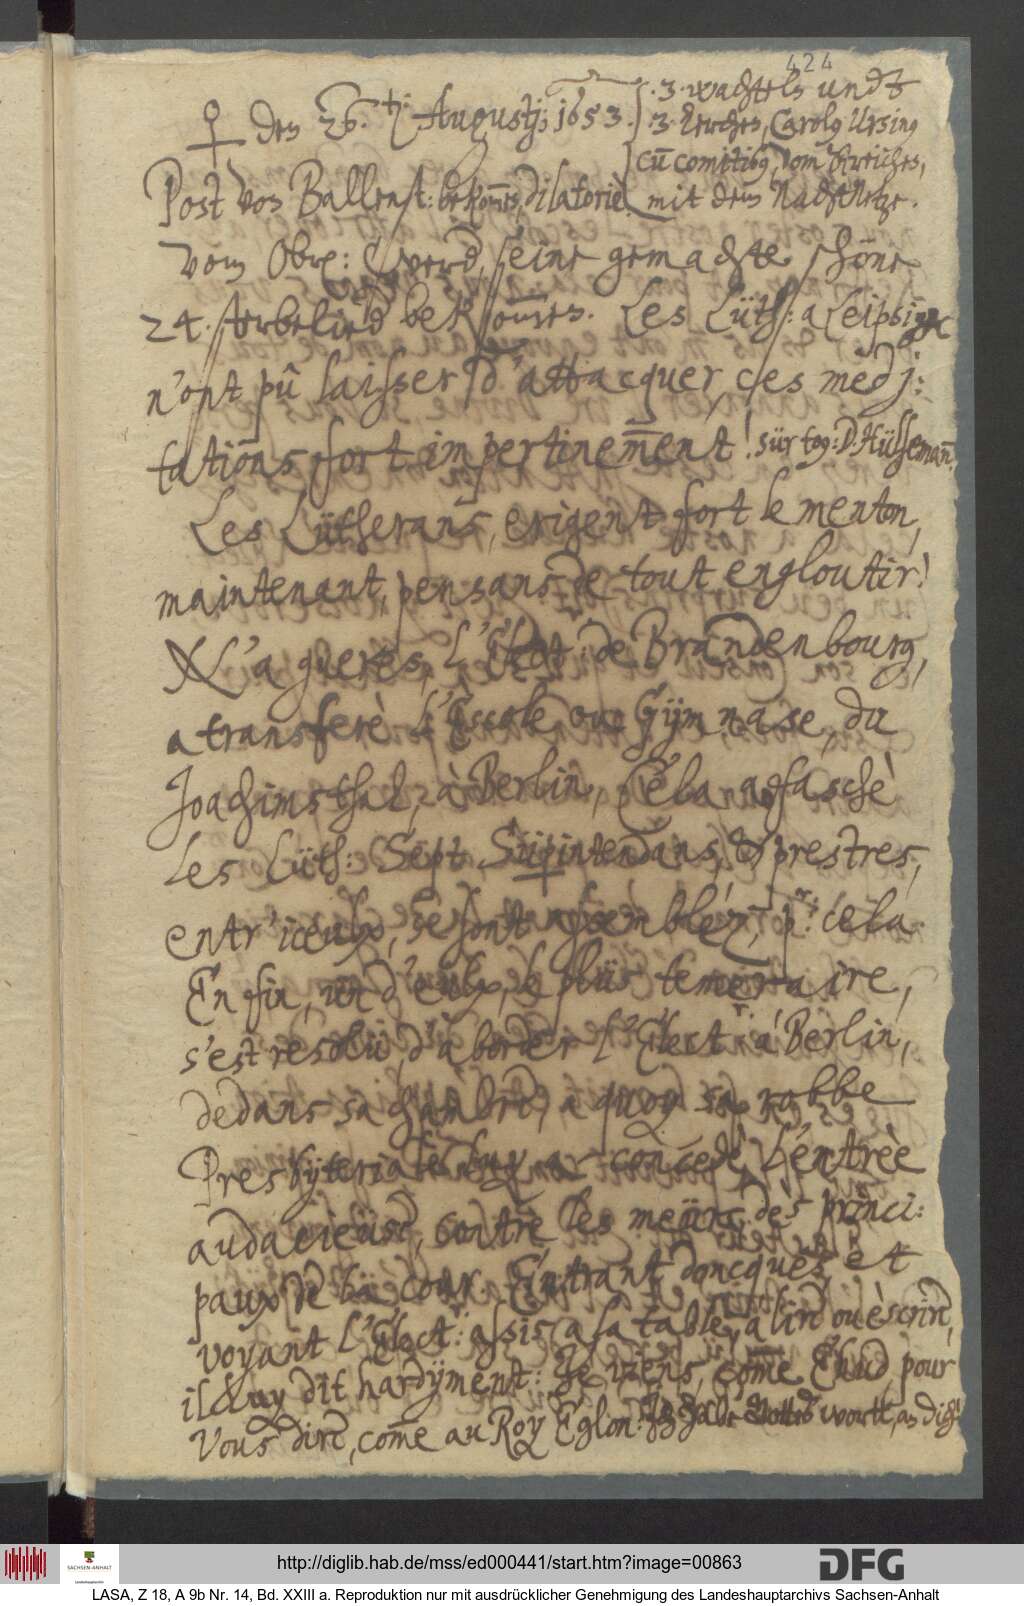 424
♀ den 26. t: Augustj; 1653.
3. wachteln undt
3. Lerchen, Carolg Ursing
cū comitibg, vom streichen,
mit dem Nachtnetze.
Post von Ballenst: bekom̄en, dilatoriè.
vom Obr: seine gemachte schöne
24. bekom̄en. Les Lüth: a Leipsigk
n'ont pû laisser, d'attacquer, ces medi:
tations fort impertinem̄ent! sür tog: D. Hülseman̄.
Les Lütherans, erigent fort le menton,
maintenant, pensans de tout engloutir!
N'a gueres, l'Elect: de Brandenbourg,
a transferè l'Escole ou Gÿmnase, du
Joachimsthal, à Berlin, Cela a faschè
les Lüth: Sept Süpintendans, & prestres,
entr'iceulx, se sont assemblèz, p: cela.
En fin, ün d'eulx, le plüs temeraire,
s'est resolü, d'aborder l'Elect: à Berlin,
dedans sa chambre, a quoy sa robbe
Presbÿteriale luy a concedè l'entrèe
audacieüse, contre les meürs des princi:
paux de la cour. Entrant doncques et
voyant l'Elect: assis, a sa table, a lire ou èscrire,
il luy dit hardÿment: Je viens, com̄e Ehud, pour
vous dire, com̄e au Roy Eglon: Ich habe Gottes wortt, an dich!
http://diglib.hab.de/mss/ed000441/start.htm?image=00863
SACHSEN-ANHALT
DFG
LASA, Z 18, A 9b Nr. 14, Bd. XXIII a. Reproduktion nur mit ausdrücklicher Genehmigung des Landeshauptarchivs Sachsen-Anhalt